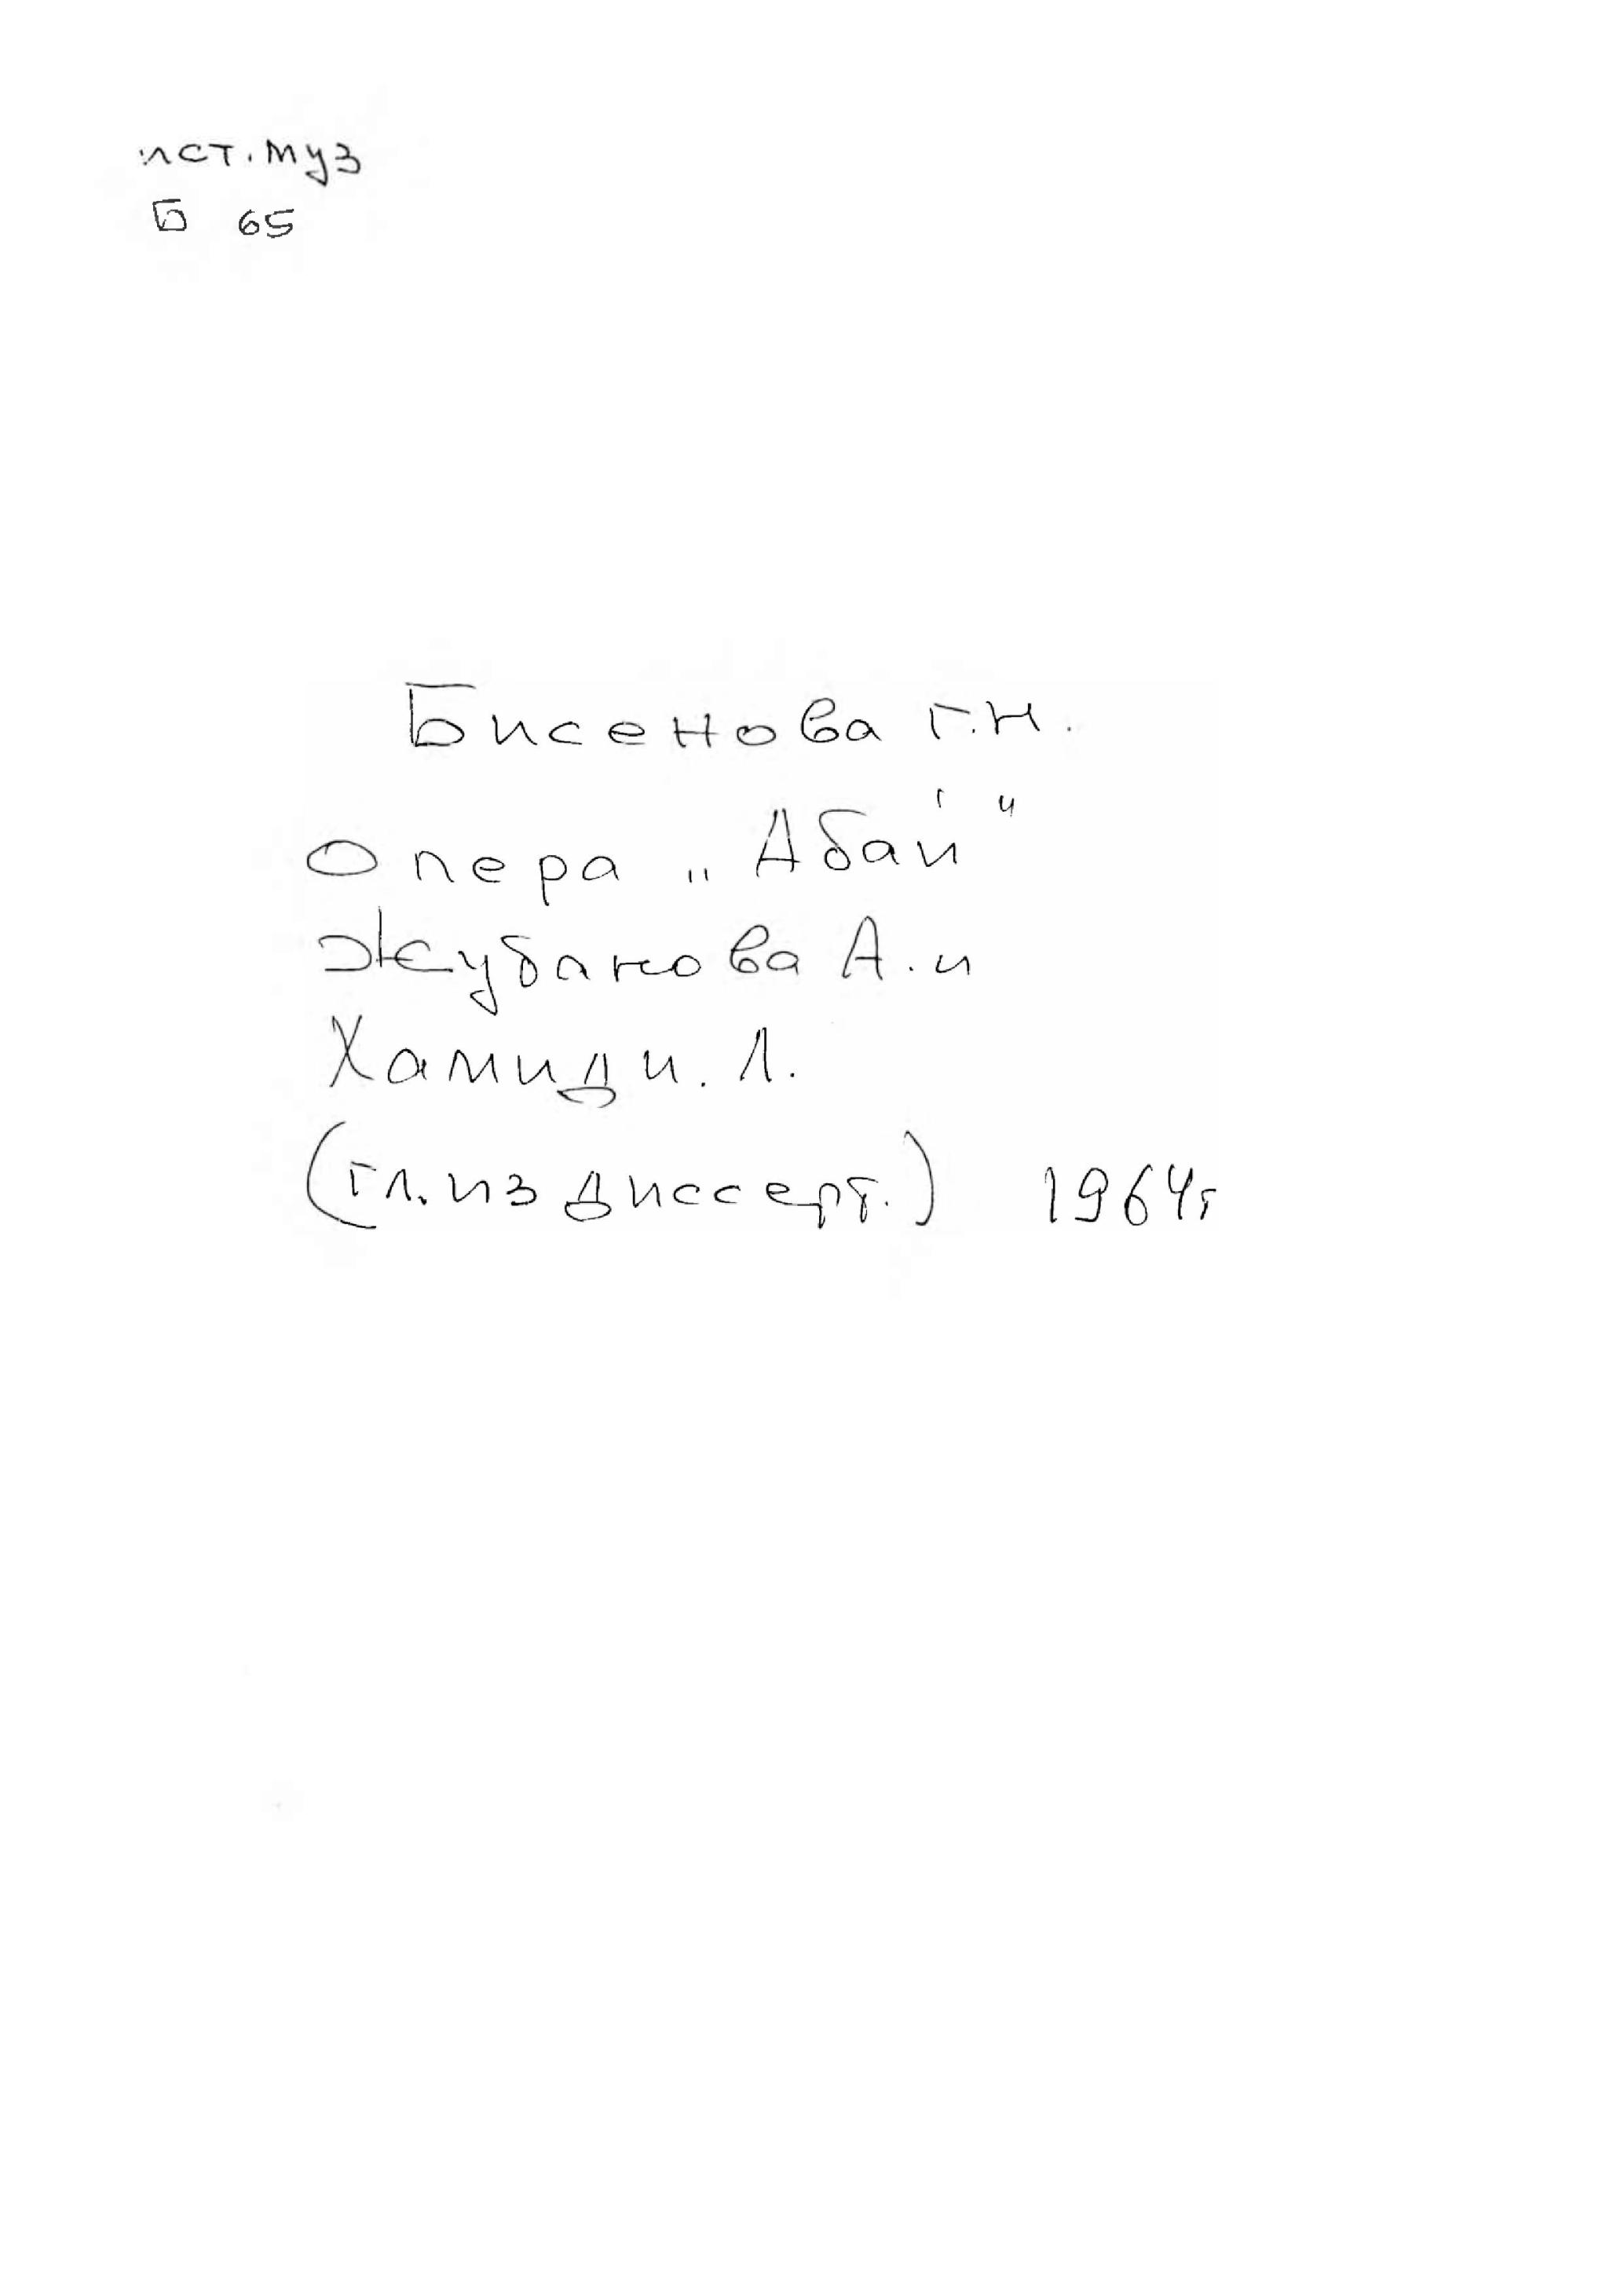 ист. муз
Б 65
Бисенова Г.Н.
Опера „Абай"
Жубанова А. и
Хамиди. Л.
(гл. из диссерт.) 1964г